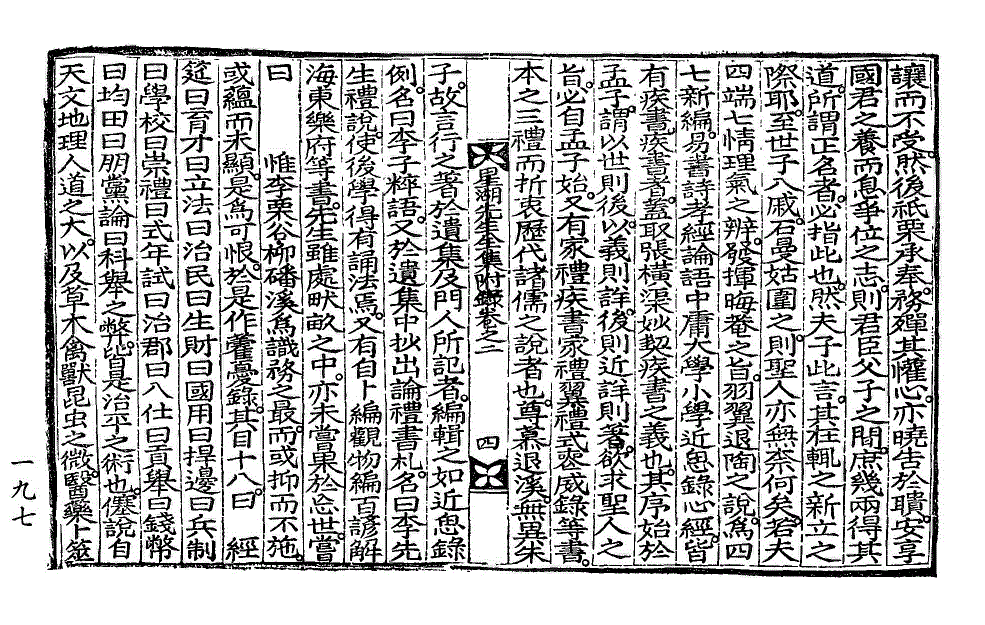 讓而不受。然後祗栗承奉。務殫其懽心。亦曉告於聵。安享
國君之養而息爭位之志。則君臣父子之間。庶幾兩得其
道。所謂正名者。必指此也。然夫子此言。其在輒之新立之
際耶。至世子八戚。石曼姑圍之。則聖人亦無柰何矣。若夫
四端七情理氣之辨。發揮晦菴之旨。羽翼退陶之說。爲四
七新編。易書詩孝經論語中庸大學小學近思錄心經。皆
有疾書。疾書者。蓋取張橫渠妙契疾書之義也。其序始於
孟子。謂以世則後。以義則詳。後則近。詳則著。欲求聖人之
旨。必自孟子始。又有家禮疾書家禮翼禮式宗威錄等書。
本之三禮而折衷歷代諸儒之說者也。尊慕退溪。無異朱
星湖先生全集附錄卷之二
四
子。故言行之著於遺集及門人所記者。編輯之如近思錄
例。名曰李子粹語。又於遺集中抄出論禮書札。名曰李先
生禮說。使後學得有誦法焉。又有自卜編觀物編百諺解
海東樂府等書。先生雖處畎畝之中。亦未嘗果於忘世。嘗
曰 惟李栗谷柳磻溪爲識務之最。而或抑而不施。
或蘊而未顯。是爲可恨。於是作藿憂錄。其目十八。曰 經
筵曰育才曰立法曰治民曰生財曰國用曰捍邊曰兵制
曰學校曰崇禮曰式年試曰治郡曰八仕曰貢擧曰錢幣
曰均田曰朋黨論曰科擧之弊。皆是治平之術也。僿說自
天文地理人道之大。以及草木禽獸昆虫之微。醫藥卜筮
一九七